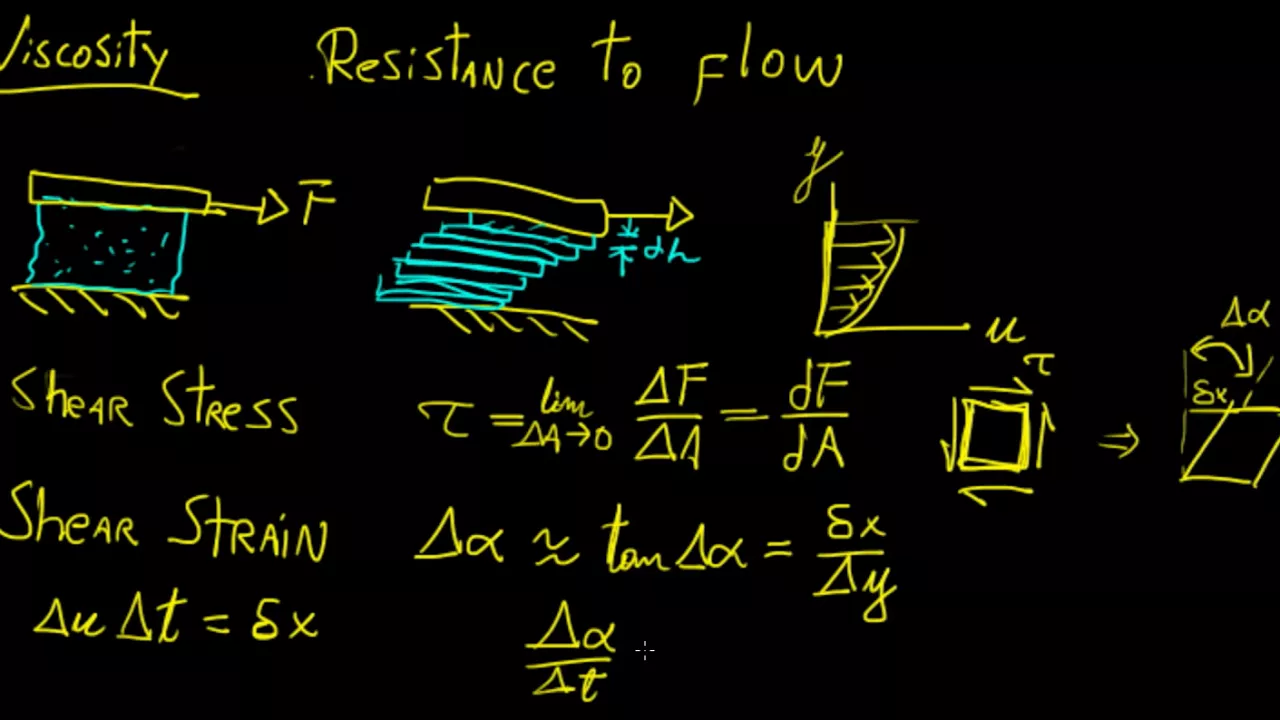 Viscosity Resistance to Flow
F
dh
y
u
τ
Δα
δx
Shear Stress τ = lim ΔA→0 ΔF/ΔA = dF/dA
⇒
Shear Strain Δα ≈ tan Δα = δx/Δy
Δu Δt = δx
Δα/Δt